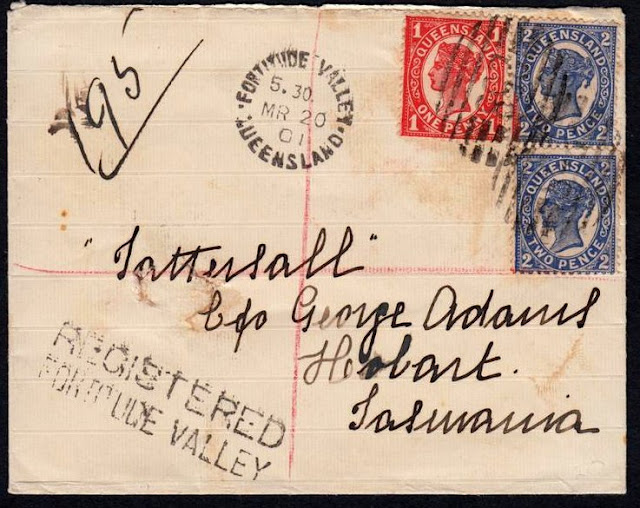 195
FORTITUDE VALLEY
5.30
MR 20
01
QUEENSLAND
1 1
QUEENSLAND
ONE PENNY
1 1
2 2
QUEENSLAND
TWO PENCE
2 2
2 2
QUEENSLAND
TWO PENCE
2 2
"Tattersall"
C/o George Adams
Hobart.
Tasmania
REGISTERED
FORTITUDE VALLEY